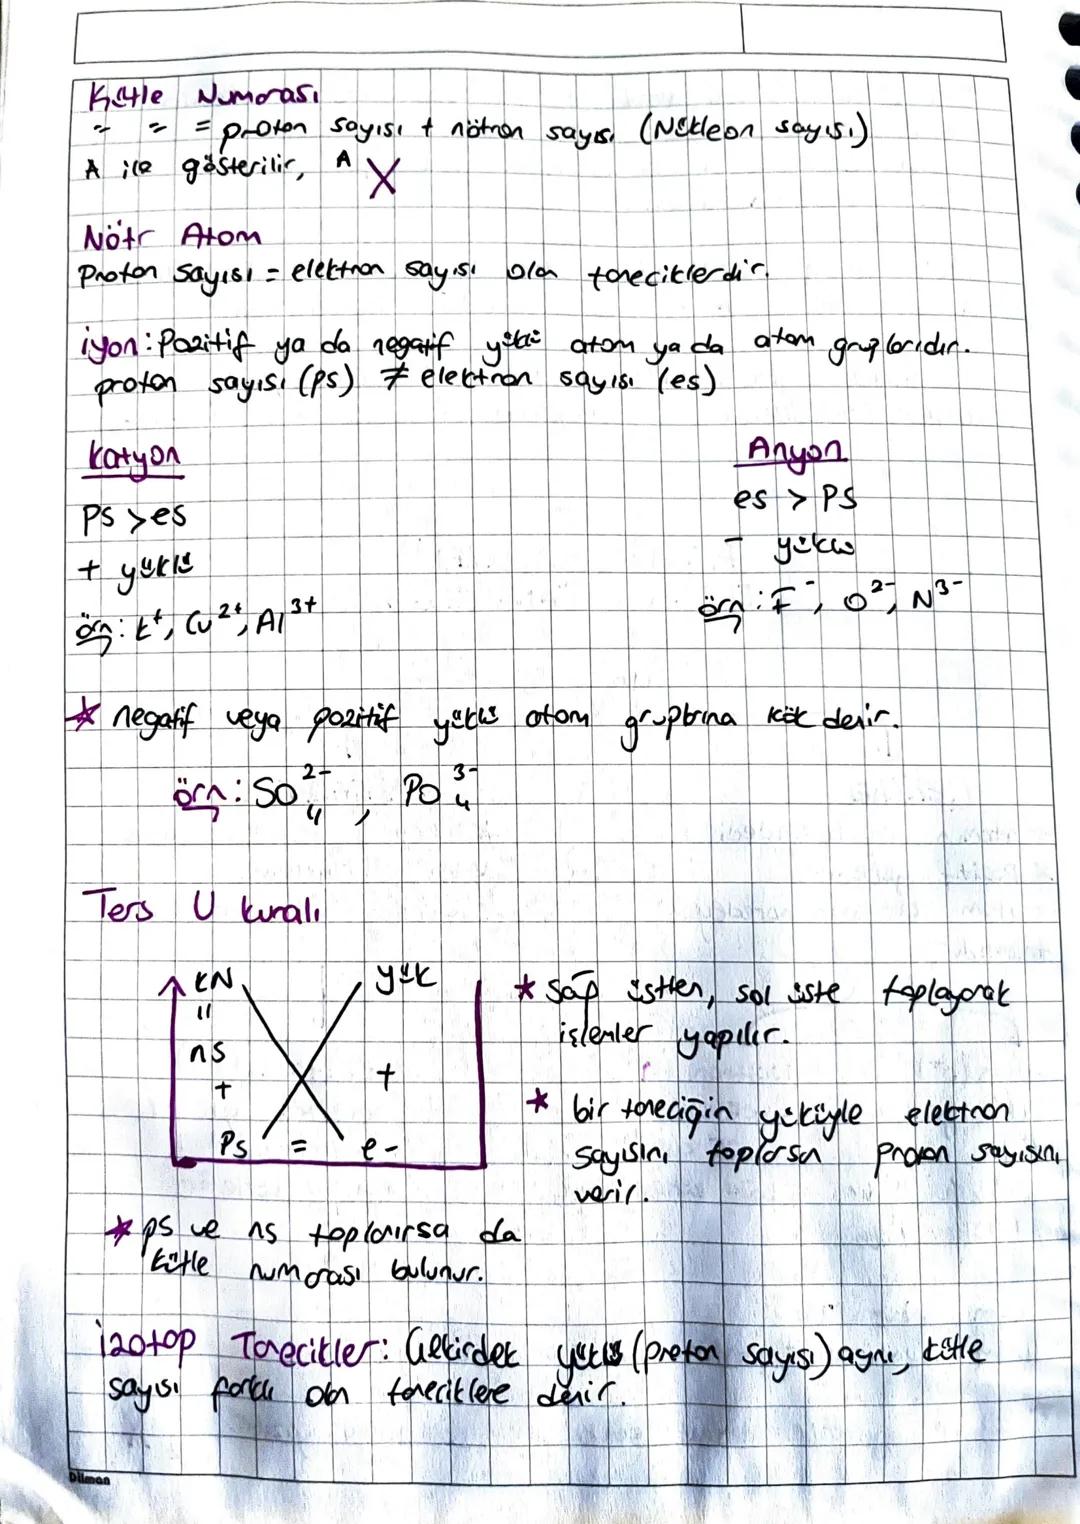 Kütle Numarası
" " = proton sayısı + nötron sayısı (Nükleon sayısı)
A ile gösterilir, ᴬX
Nötr Atom
Proton sayısı = elektron sayısı olan taneciklerdir.
iyon: Pozitif ya da negatif yüklü atom ya da atom gruplarıdır.
proton sayısı (ps) ≠ elektron sayısı (es)
Katyon
ps > es
+ yüklü
örn: K⁺, Cu²⁺, Al³⁺
Anyon
es > ps
- yüklü
örn: F⁻, O²⁻, N³⁻
* negatif veya pozitif yüklü atom gruplarına kök denir.
örn: SO₄²⁻, PO₄³⁻
Ters U kuralı
KN yük
=
ns
+ +
Ps = e-
* Sağ üstten, sol üste toplayarak
işlemler yapılır.
* bir taneciğin yüküyle elektron
sayısını toplarsan proton sayısını
verir.
* ps ve ns toplanırsa da
kütle numarası bulunur.
izotop Tanecikler: Çekirdek yükü (proton sayısı) aynı, kütle
sayısı farklı olan taneciklere denir.
Dilman